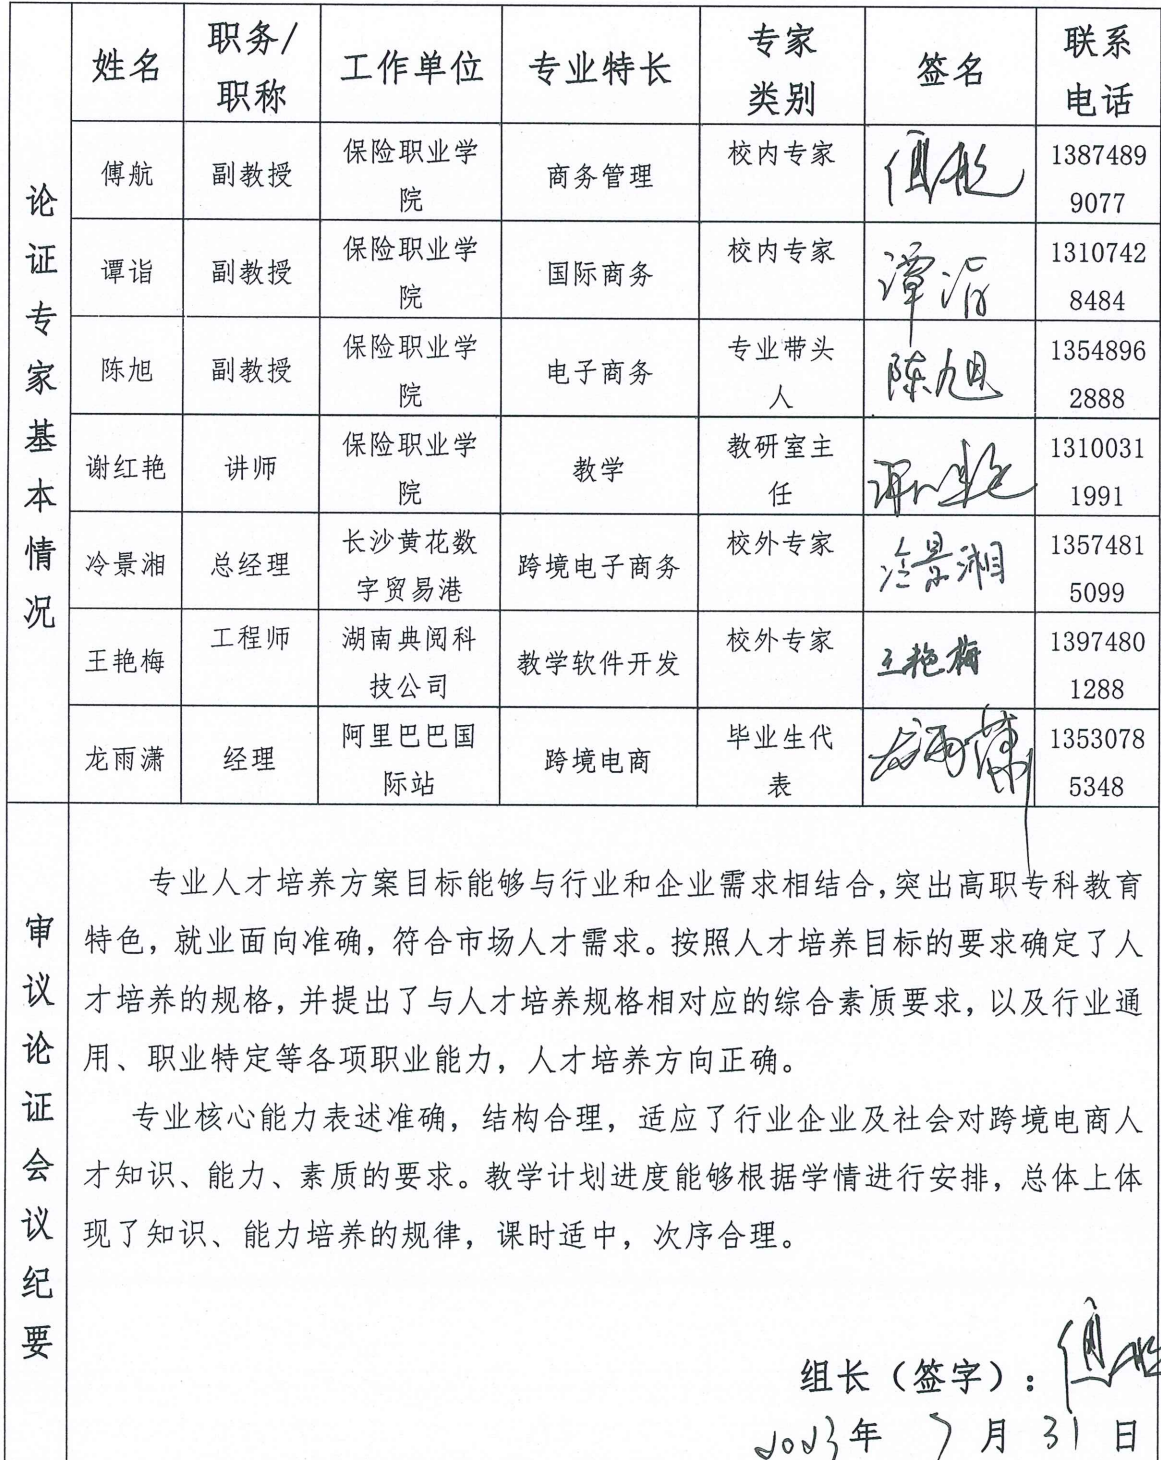 论证专家基本情况
姓名 职务/职称 工作单位 专业特长 专家类别 签名 联系电话
傅航 副教授 保险职业学院 商务管理 校内专家 傅航 13874899077
谭诣 副教授 保险职业学院 国际商务 校内专家 谭诣 13107428484
陈旭 副教授 保险职业学院 电子商务 专业带头人 陈旭 13548962888
谢红艳 讲师 保险职业学院 教学 教研室主任 谢红艳 13100311991
冷景湘 总经理 长沙黄花数字贸易港 跨境电子商务 校外专家 冷景湘 13574815099
王艳梅 工程师 湖南典阅科技公司 教学软件开发 校外专家 王艳梅 13974801288
龙雨潇 经理 阿里巴巴国际站 跨境电商 毕业生代表 龙雨潇 13530785348
审议论证会议纪要
专业人才培养方案目标能够与行业和企业需求相结合，突出高职专科教育
特色，就业面向准确，符合市场人才需求。按照人才培养目标的要求确定了人
才培养的规格，并提出了与人才培养规格相对应的综合素质要求，以及行业通
用、职业特定等各项职业能力，人才培养方向正确。
专业核心能力表述准确，结构合理，适应了行业企业及社会对跨境电商人
才知识、能力、素质的要求。教学计划进度能够根据学情进行安排，总体上体
现了知识、能力培养的规律，课时适中，次序合理。
组长（签字）：傅航
2023年 7月 31日